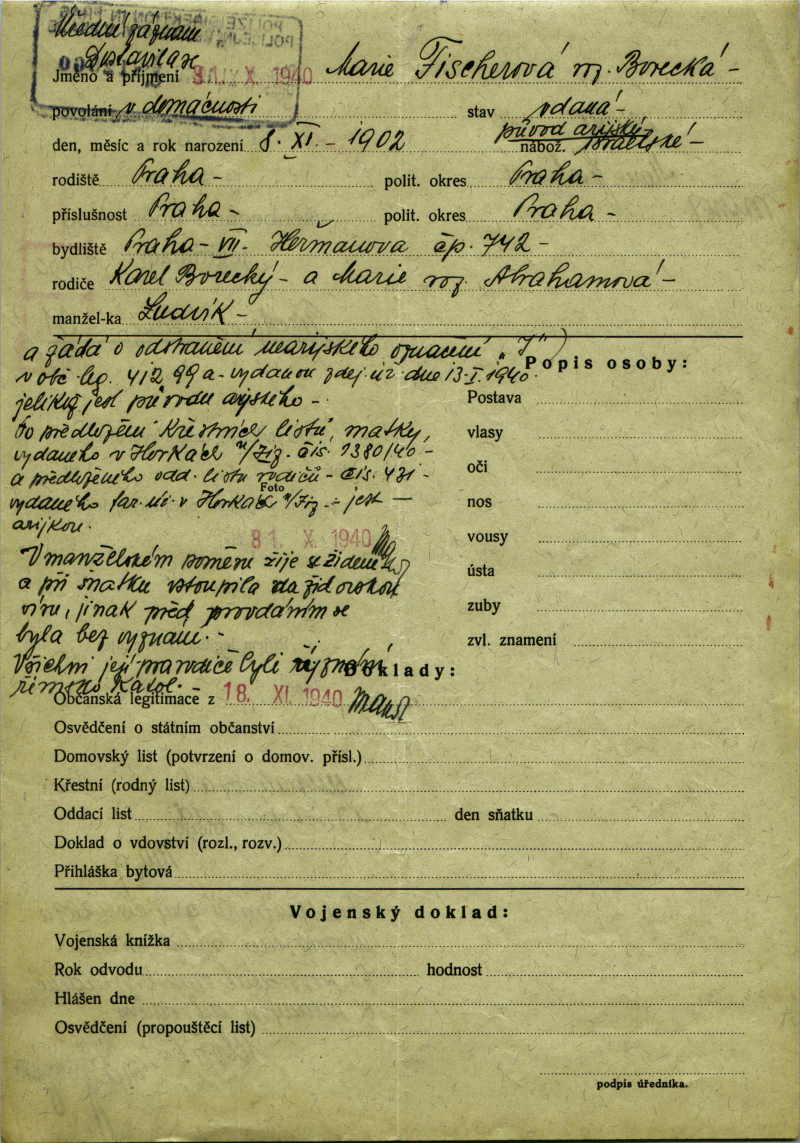 Úřední záznam
Dostavila se
Jméno a příjmení 31. X. 1940 Marie Fischerová roz. Borecká -
povolání v domácnosti stav vdaná -
den, měsíc a rok narození 8. XI. - 1902 původ arijský
nábož. israelské -
rodiště Praha - polit. okres Praha -
příslušnost Praha - polit. okres Praha -
bydliště Praha - VII. Heřmanova čp. 742 -
rodiče Karel Borecký - a Marie roz. Abrahamová -
manžel-ka Ludvík -
a žádá o odstranění nearijského označení „J“
v obč. leg. 41299 a - vydanou zdej. úř. dne 13. I. 1940.
Popis osoby:
jelikož jest původu arijského -
Postava
Po předložení křestních listů, matky,
vlasy
vydaného v Horkách n/Jiz. čís. 1380/40 -
a předloženého odd. listu rodičů - čís. 431 -
oči
Foto
vydaného far. úř. v Horkách n/Jiz. - jest -
nos
arijkou.
31 X. 1940
vousy
V manželském poměru žije se židem
a při sňatku vstoupila na židovskou
ústa
víru, jinak před provdáním se
zuby
byla bez vyznání. -
zvl. znamení
Všichni její prarodiče byli vyznání
Doklady:
římsko katol. -
Občanská legitimace z 18. XI. 1940
Osvědčení o státním občanství
Domovský list (potvrzení o domov. přísl.)
Křestní (rodný list)
Oddací list den sňatku
Doklad o vdovství (rozl., rozv.)
Přihláška bytová
Vojenský doklad:
Vojenská knížka
Rok odvodu hodnost
Hlášen dne
Osvědčení (propouštěcí list)
podpis úředníka.